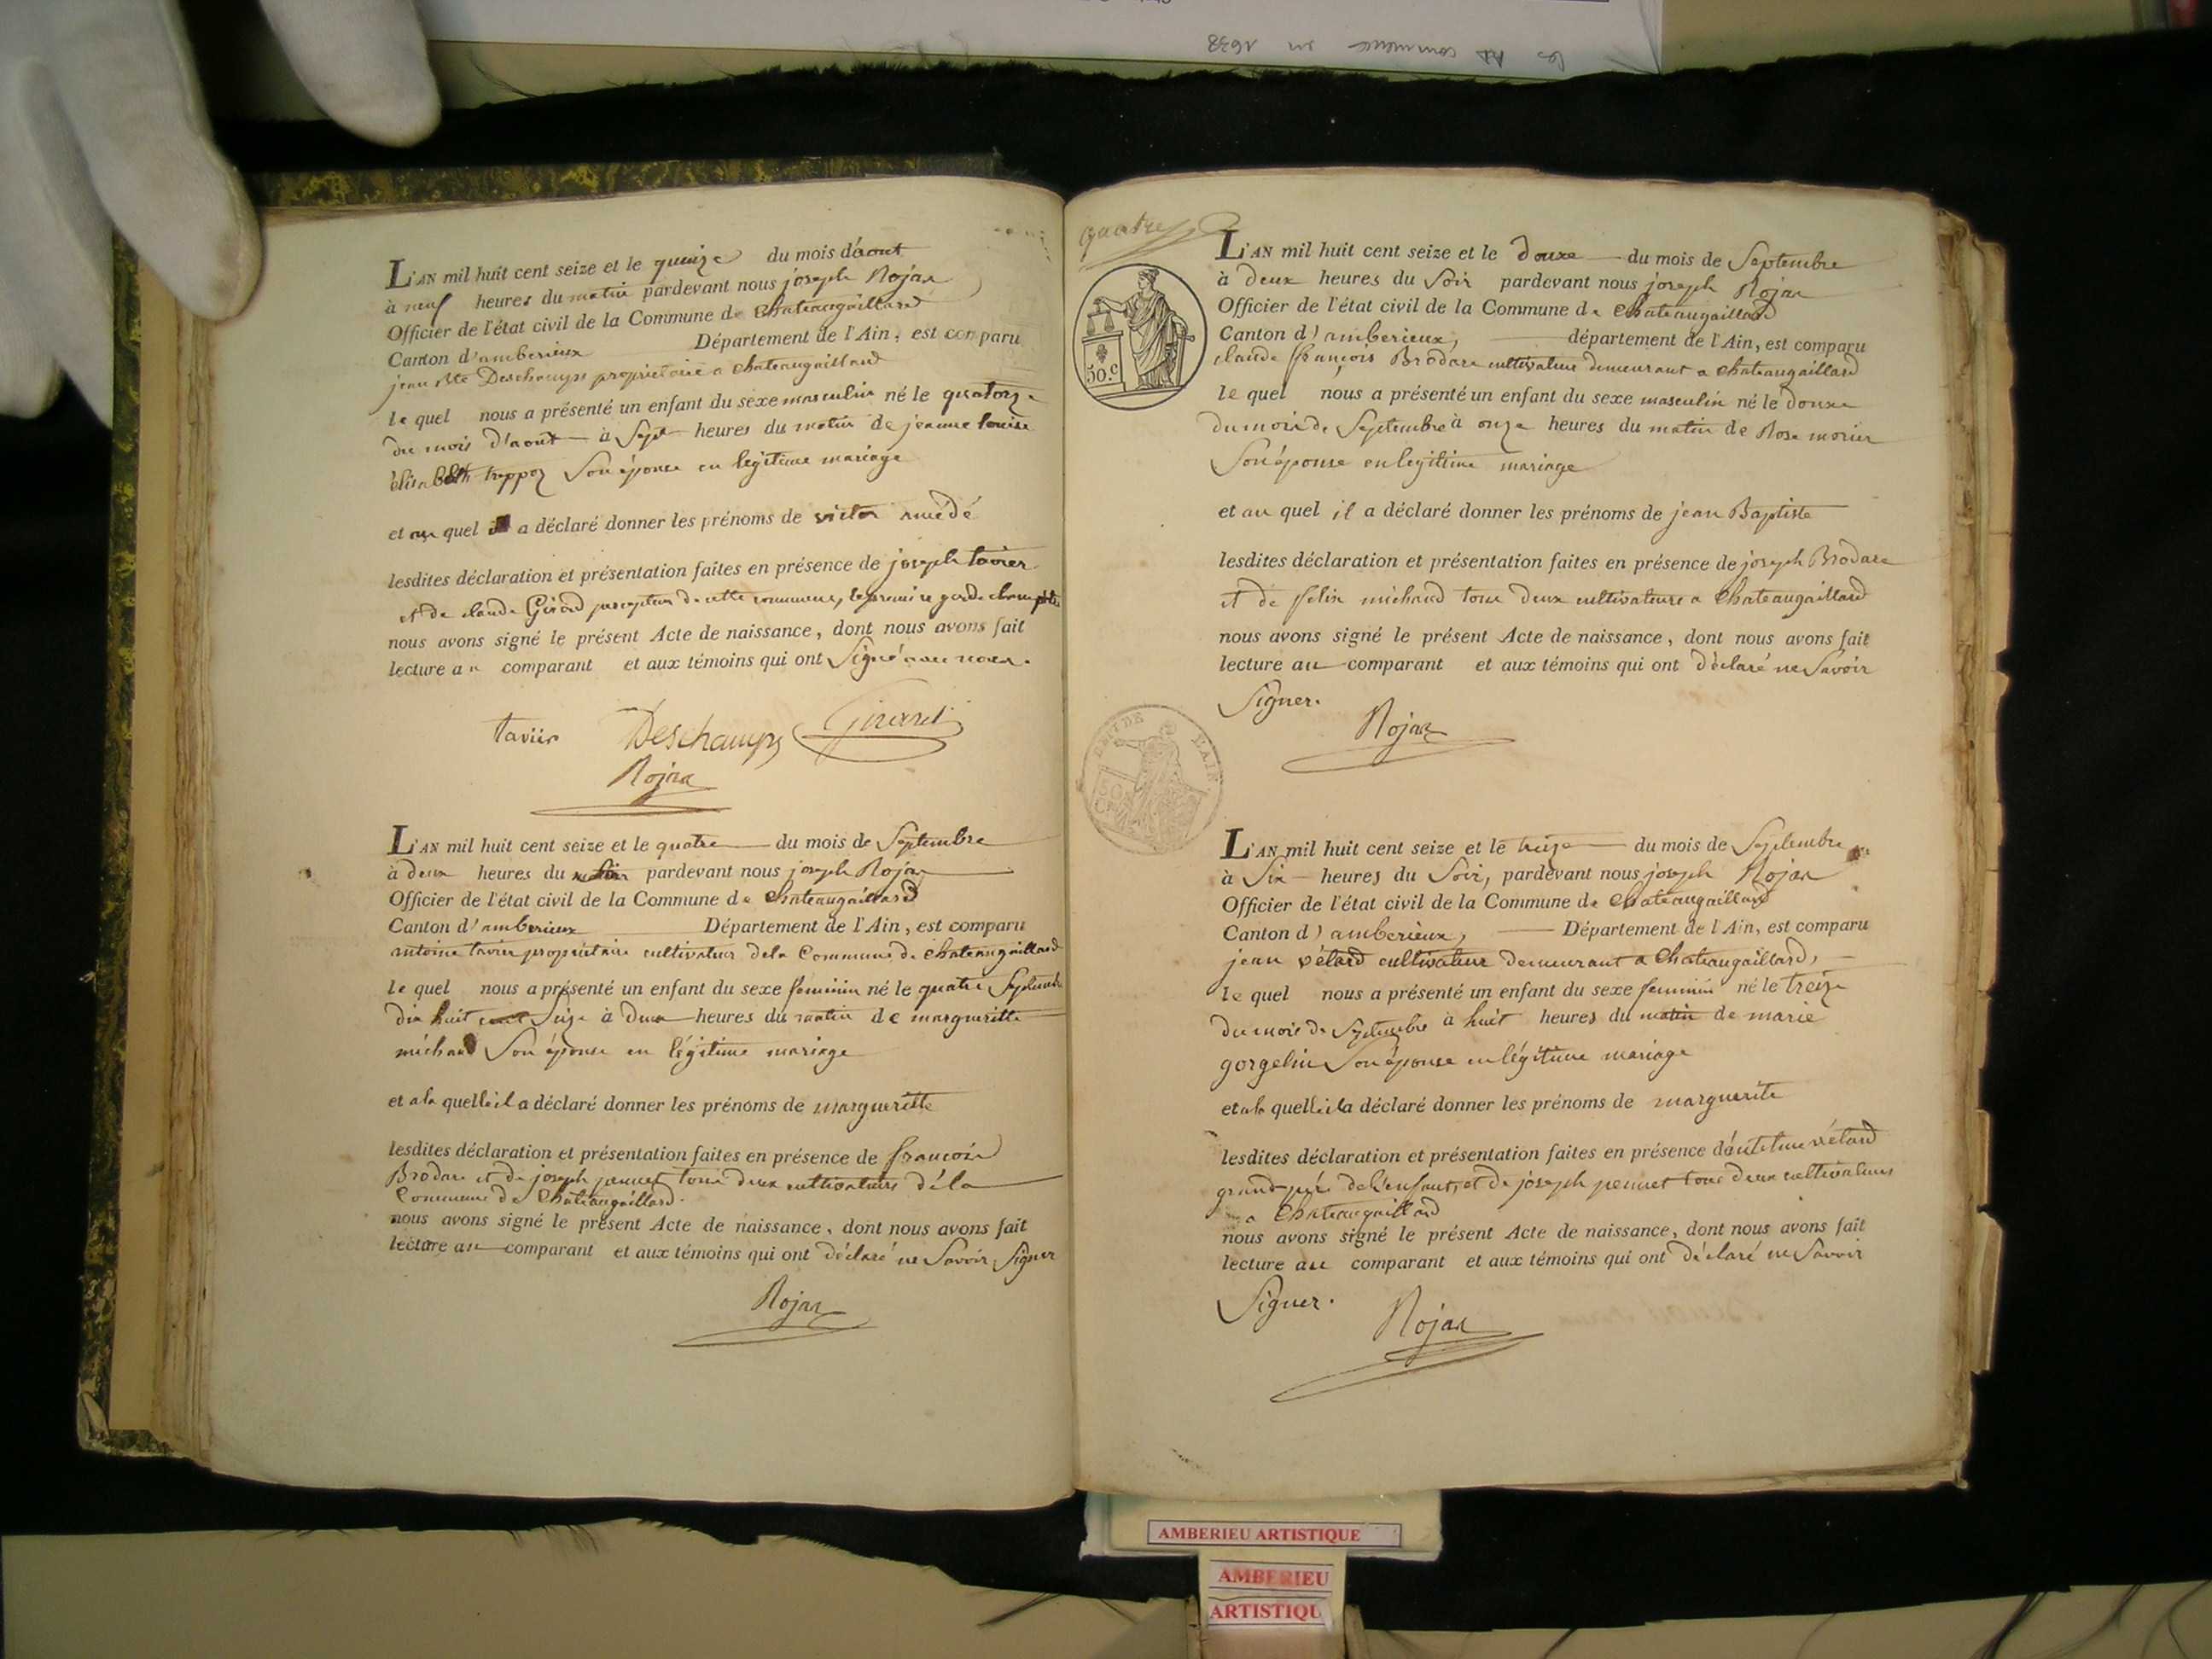 les commence en 1638
L'AN mil huit cent seize et le quinze du mois d'aout
à neuf heures du matin pardevant nous joseph Rojas
Officier de l'état civil de la Commune de Chateaugaillard
Canton d'amberieux Département de l'Ain, est comparu
jean Deschamps proprietaire a Chateaugaillard
le quel nous a présenté un enfant du sexe masculin né le quatorze
du mois d'aout à Sept heures du matin de jeanne louise
trappoz Son épouse en legitime mariage
et au quel il a déclaré donner les prénoms de victor amédé
lesdites déclaration et présentation faites en présence de joseph tavier
et de claude Girard de cette commune, le premier garde champêtre
nous avons signé le présent Acte de naissance, dont nous avons fait
lecture au comparant et aux témoins qui ont Signé avec nous.
tavier Deschamps Girard
Rojas
L'AN mil huit cent seize et le quatre du mois de Septembre
à deux heures du pardevant nous joseph Rojas
Officier de l'état civil de la Commune de Chateaugaillard
Canton d'amberieux Département de l'Ain, est comparu
antoine tavier propriétaire cultivateur dela Commune de Chateaugaillard
le quel nous a présenté un enfant du sexe feminin né le quatre Septembre
dix huit cent Seize à deux heures du matin de margueritte
michaud Son épouse en légitime mariage
et ala quelle il a déclaré donner les prénoms de margueritte
lesdites déclaration et présentation faites en présence de francois
Brodare et de joseph tous deux cultivateurs déla
Commune de Chateaugaillard.
nous avons signé le présent Acte de naissance, dont nous avons fait
lecture au comparant et aux témoins qui ont déclaré ne Savoir Signer
Rojas
quatre
50.c
L'AN mil huit cent seize et le douxe du mois de Septembre
à deux heures du Soir pardevant nous joseph Rojas
Officier de l'état civil de la Commune de Chateaugaillard
Canton d'amberieux, département de l'Ain, est comparu
claude françois Brodare cultivateur demeurant a Chateaugaillard
le quel nous a présenté un enfant du sexe masculin né le douxe
du mois de Septembre à onze heures du matin de Rose morier
Son épouse en legitime mariage
et au quel il a déclaré donner les prénoms de jean Baptiste
lesdites déclaration et présentation faites en présence de joseph Brodare
et de felix michaud tous deux cultivateurs a Chateaugaillard
nous avons signé le présent Acte de naissance, dont nous avons fait
lecture au comparant et aux témoins qui ont déclaré ne Savoir
Signer.
Rojas
L'AIN
50
L'AN mil huit cent seize et le treize du mois de Septembre
à Six heures du Soir, pardevant nous joseph Rojas
Officier de l'état civil de la Commune de Chateaugaillard
Canton d'amberieux, Département de l'Ain, est comparu
jean vélard cultivateur demeurant a Chateaugaillard,
le quel nous a présenté un enfant du sexe feminin né le treize
du mois de Septembre à huit heures du matin de marie
gorgelin Son épouse en légitime mariage
et ala quelle il a déclaré donner les prénoms de marguerite
lesdites déclaration et présentation faites en présence vélard
grand père de l'enfant, et de joseph tous deux cultivateurs
a Chateaugaillard
nous avons signé le présent Acte de naissance, dont nous avons fait
lecture au comparant et aux témoins qui ont déclaré ne Savoir
Signer.
Rojas
AMBERIEU ARTISTIQUE
AMBERIEU
ARTISTIQU